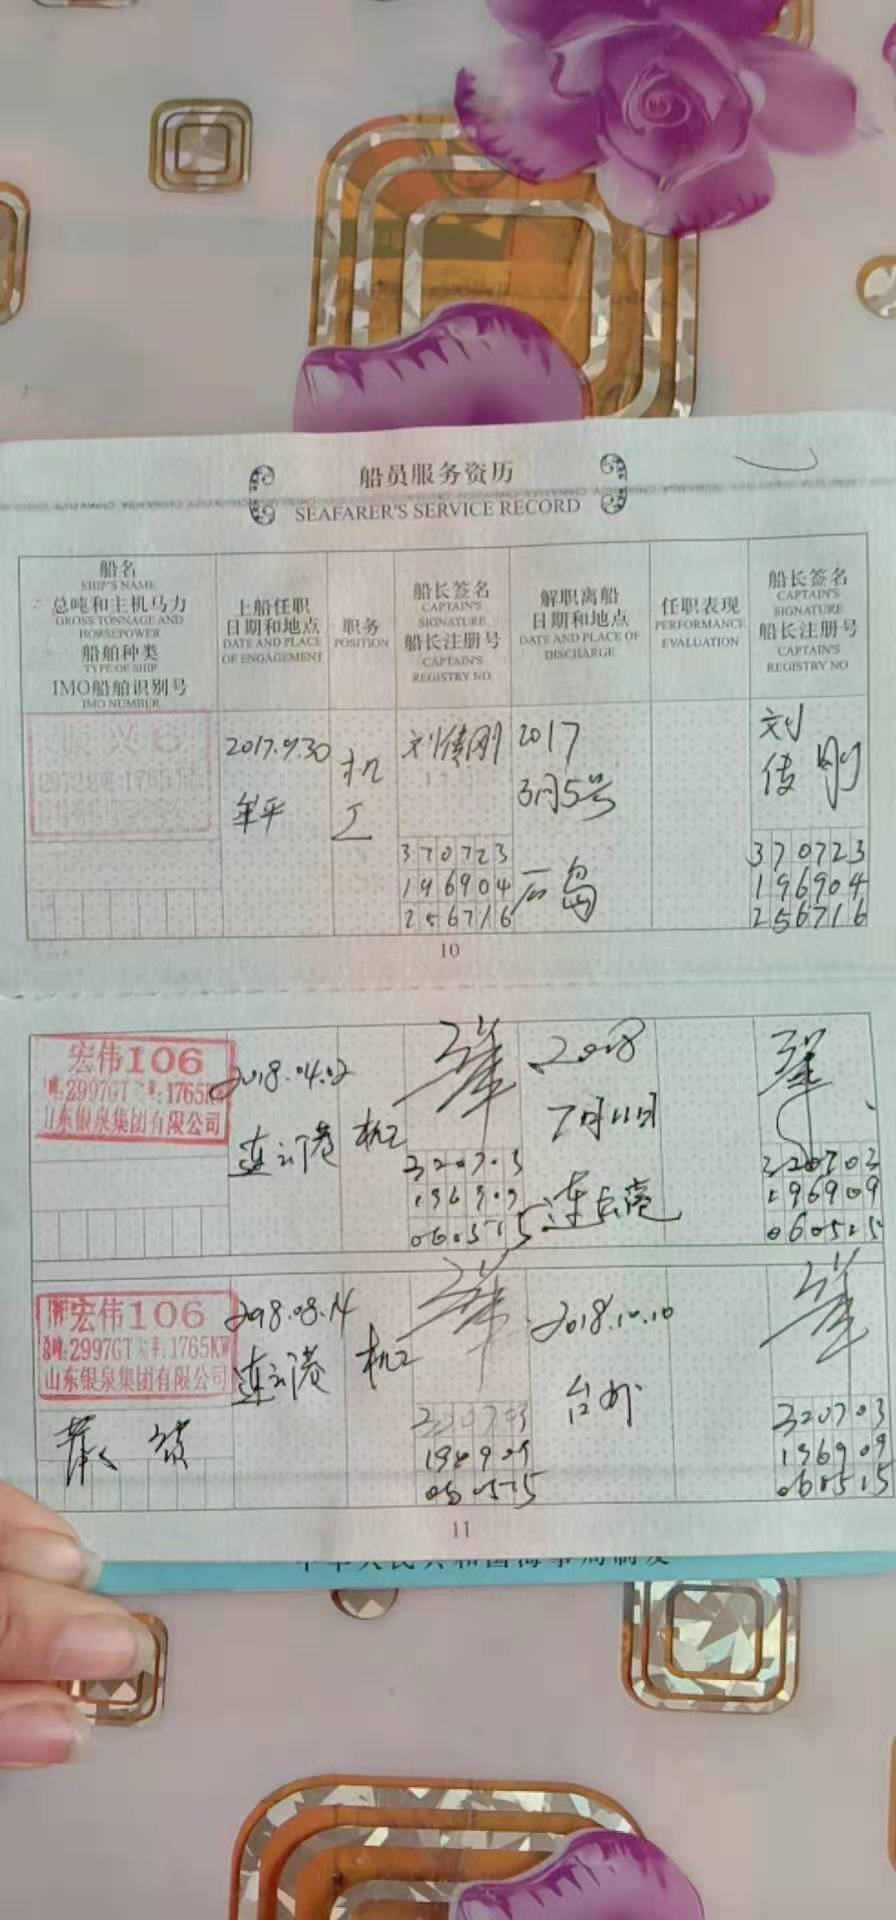 船员服务资历
SEAFARER'S SERVICE RECORD
船名
SHIP'S NAME
总吨和主机马力
GROSS TONNAGE AND
HORSEPOWER
船舶种类
TYPE OF SHIP
IMO船舶识别号
IMO NUMBER
上船任职
日期和地点
DATE AND PLACE
OF ENGAGEMENT
职务
POSITION
船长签名
CAPTAIN'S
SIGNATURE
船长注册号
CAPTAIN'S
REGISTRY NO.
解职离船
日期和地点
DATE AND PLACE OF
DISCHARGE
任职表现
PERFORMANCE
EVALUATION
船长签名
CAPTAIN'S
SIGNATURE
船长注册号
CAPTAIN'S
REGISTRY NO
振兴6
牟平
机
工
刘传刚
370723
196904
256716
2017
3月5号
石岛
刘
传刚
370723
196904
256716
10
宏伟106
2997GT 1765KW
山东银泉集团有限公司
2018.04.02
连云港
机工
2018
7月11日
连云港
320703
196909
11
宏伟106
总吨:2997GT 功率:1765KW
山东银泉集团有限公司
2018.08.14
连云港
机工
2018.10.10
台州
320703
196909
060515